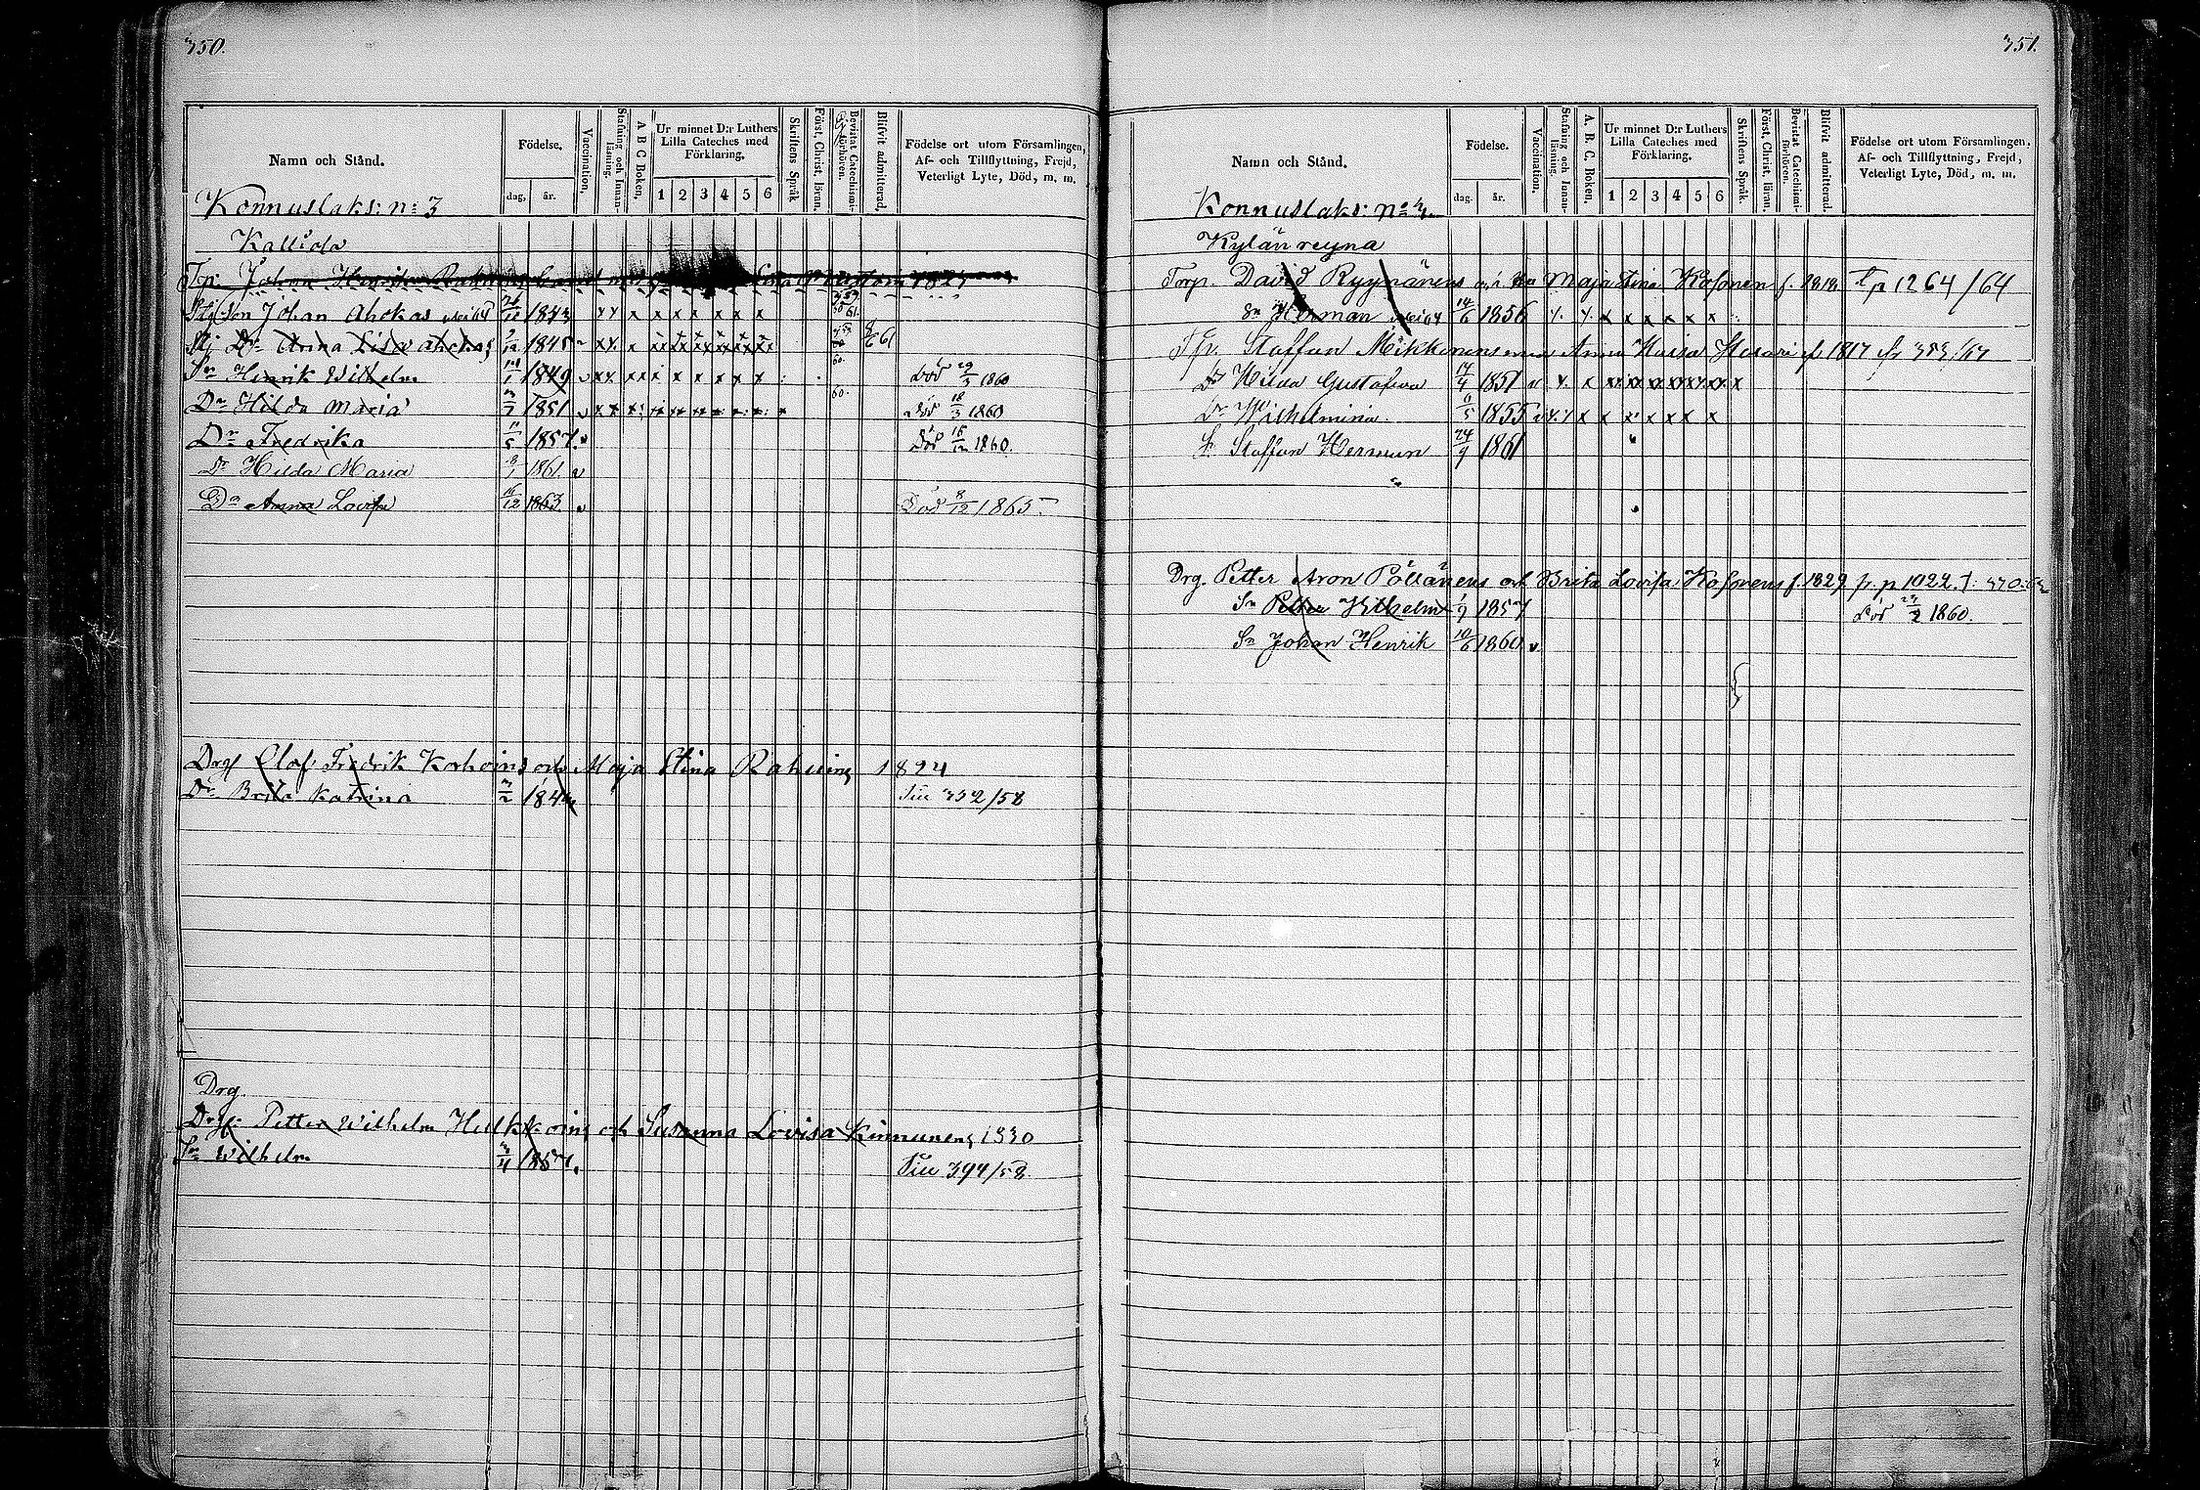 350.
Namn och Stånd.
Födelse.
dag. år.
Vaccination.
Stafning och Innanläsning.
A B C Boken.
Ur minnet D:r Luthers Lilla Cateches med Förklaring.
1 2 3 4 5 6
Skriftens Språk.
Först. Christ. läran.
Bevistat Catechismiförhören.
Blifvit admitterad.
Födelse ort utom Församlingen, Af- och Tillflyttning, Frejd, Veterligt Lyte, Död, m. m.
Konnuslaks: n: 3
Kallida
Torp: Johan Henrik
Johan Ahokas 1843
Dr Anna Lisa Ahokas 1845
Sn Henrik Wilhelm 1849 Död 29/3 1860
Dr Hilda Maria 1851 Död 18/3 1860
Dr Fredrika 11/5 1857 Död 15/12 1860.
Dr Hilda Maria 1861
Dr Anna Lovisa 1863 Död 8/12 1865
Drg Olof Fredrik Korhoins och Maja Stina Rahuins 1824
Dr Brita Katrina 352/58
Drg.
Drg: Petter Wilhelm Hukkoins och Susanna Lovisa Kinnunens 1830
Sn Wilhelm 1857. 394/58
351.
Namn och Stånd.
Födelse.
dag. år.
Vaccination.
Stafning och Innanläsning.
A. B. C. Boken.
Ur minnet D:r Luthers Lilla Cateches med Förklaring.
1 2 3 4 5 6
Skriftens Språk.
Först. Christ. läran.
Bevistat Catechismiförhören.
Blifvit admitterad.
Födelse ort utom Församlingen, Af- och Tillflyttning, Frejd, Veterligt Lyte, Död, m. m.
Konnuslaks: No 4.
Kylän reyna
Torp. David Ryynänens Maja Stina Kosonen f. 1818 p 1264/64
Sn Herman 14/6 1856
Staffan Mikkonens Anna Kaisa f. 1817
Dr Hilda Gustafva 17/4 1851
Dr Wilhelmina. 6/5 1855
S. Staffan Herman 24/9 1861
Drg. Petter Aron Pöllänens och Brita Lovisa Kosonens f. 1829 p. p 1022.
Sn Petter Wilhelm 1857 Död 1860.
Sn Johan Henrik 10/6 1860